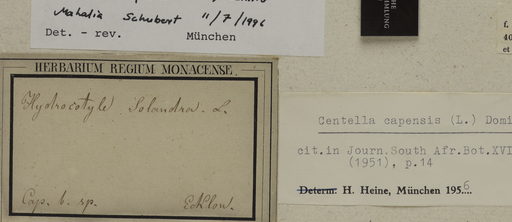 Mahalia Schubert 11/7/1996
Det. - rev. München
HE
MMLUNG
f.
et
HERBARIUM REGIUM MONACENSE.
Hydrocotyle Solandra. L.
Cap. b. sp. Ecklon.
Centella capensis (L.) Domi
cit.in Journ.South Afr.Bot.XVI
(1951), p.14
Determ. H. Heine, München 1956